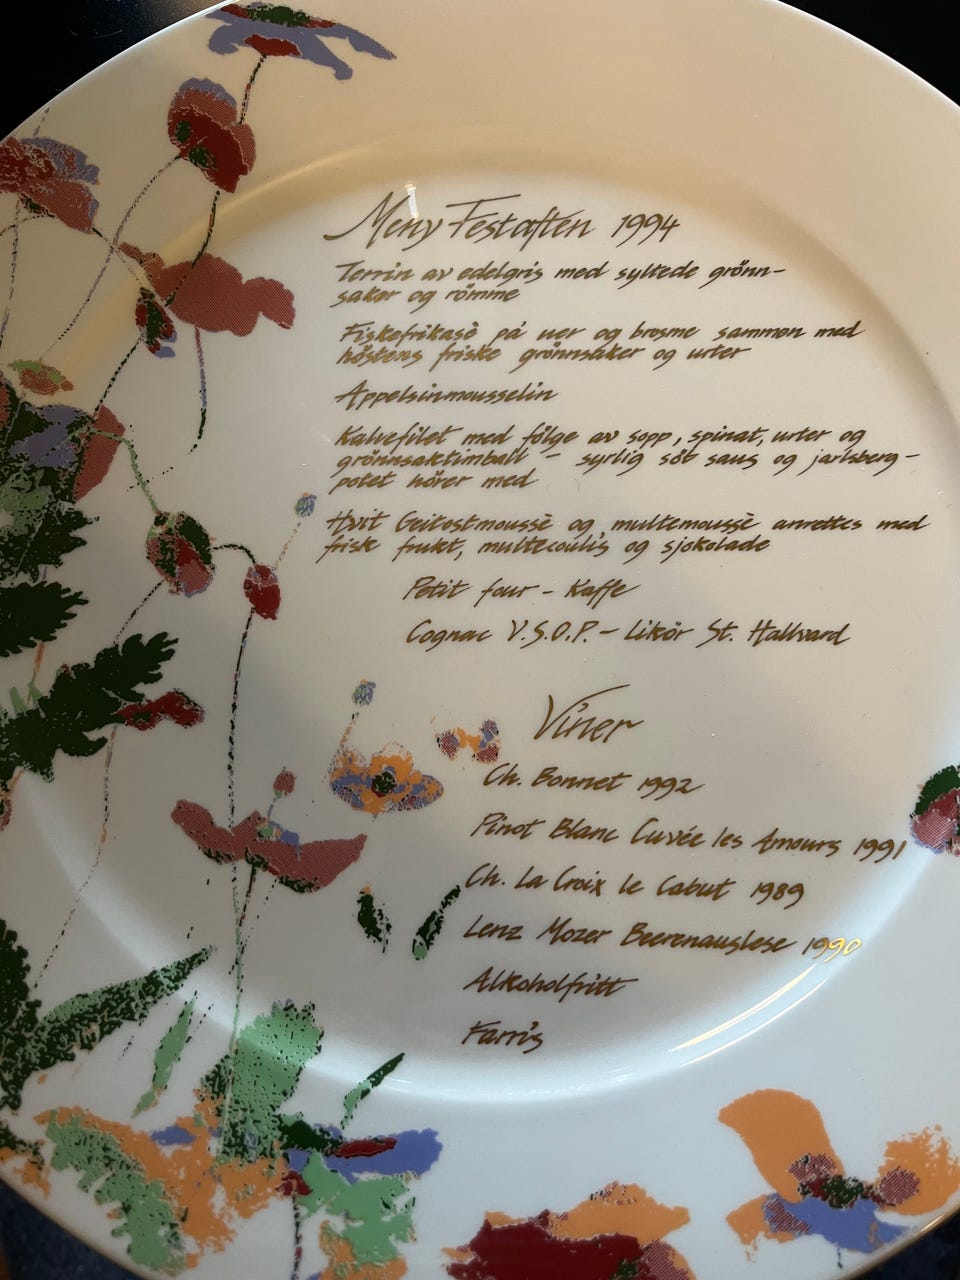 Meny Festaften 1994
Terrin av edelgris med syltede grönn-
saker og römme
Fiskefrikasè på uer og brosme sammen med
höstens friske grönnsaker og urter
Appelsinmousselin
Kalvefilet med fölge av sopp, spinat, urter og
grönnsaktimball - syrlig söt saus og jarlsberg-
potet hörer med
Hvit Geitostmoussè og multemoussè anrettes med
frisk frukt, multecoulis og sjokolade
Petit four - Kaffe
Cognac V.S.O.P. - Likör St. Hallvard
Viner
Ch. Bonnet 1992
Pinot Blanc Cuvée les Amours 1991
Ch. La Croix le Cabut 1989
Lenz Mozer Beerenauslese 1990
Alkoholfritt
Farris